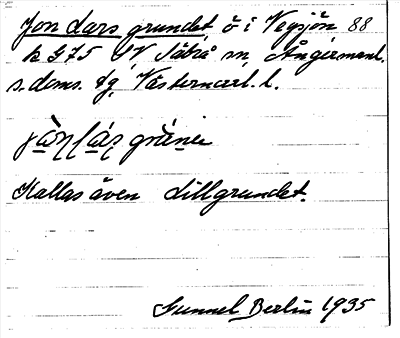 Jon Lars grundet, ö i Vegsjön 88
k 975 SV Säbrå sn, Ångermanl.
s. doms. dg, Västernorrl. l.
Kallas även Lillgrundet.
Gunnel Berlin 1935